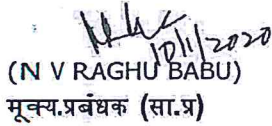 10/1/2020
(N V RAGHU BABU)
मूक्य.प्रबंधक (सा.प्र)